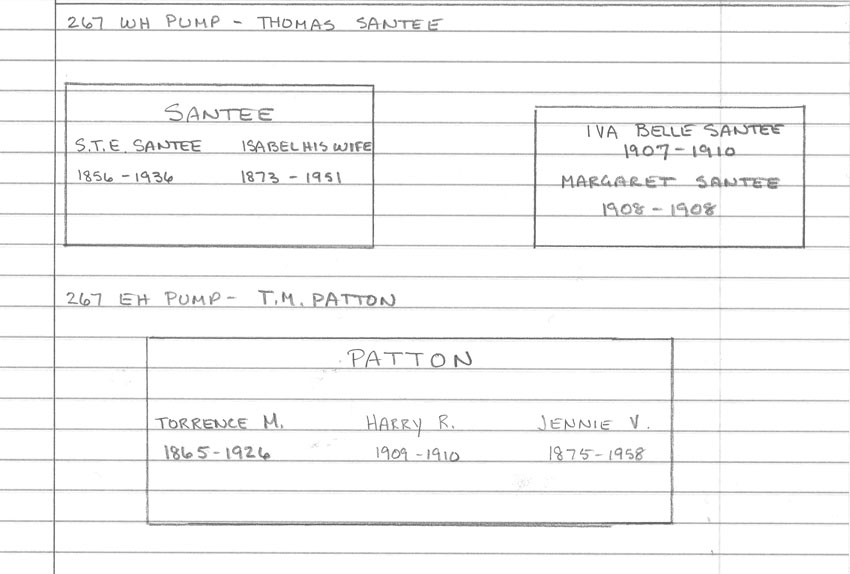 267 WH PUMP - THOMAS SANTEE
SANTEE
S.T.E. SANTEE ISABEL HIS WIFE
1856 - 1936 1873 - 1951
IVA BELLE SANTEE
1907 - 1910
MARGARET SANTEE
1908 - 1908
267 EH PUMP - T.M. PATTON
PATTON
TORRENCE M. HARRY R. JENNIE V.
1865 - 1926 1909 - 1910 1875 - 1958